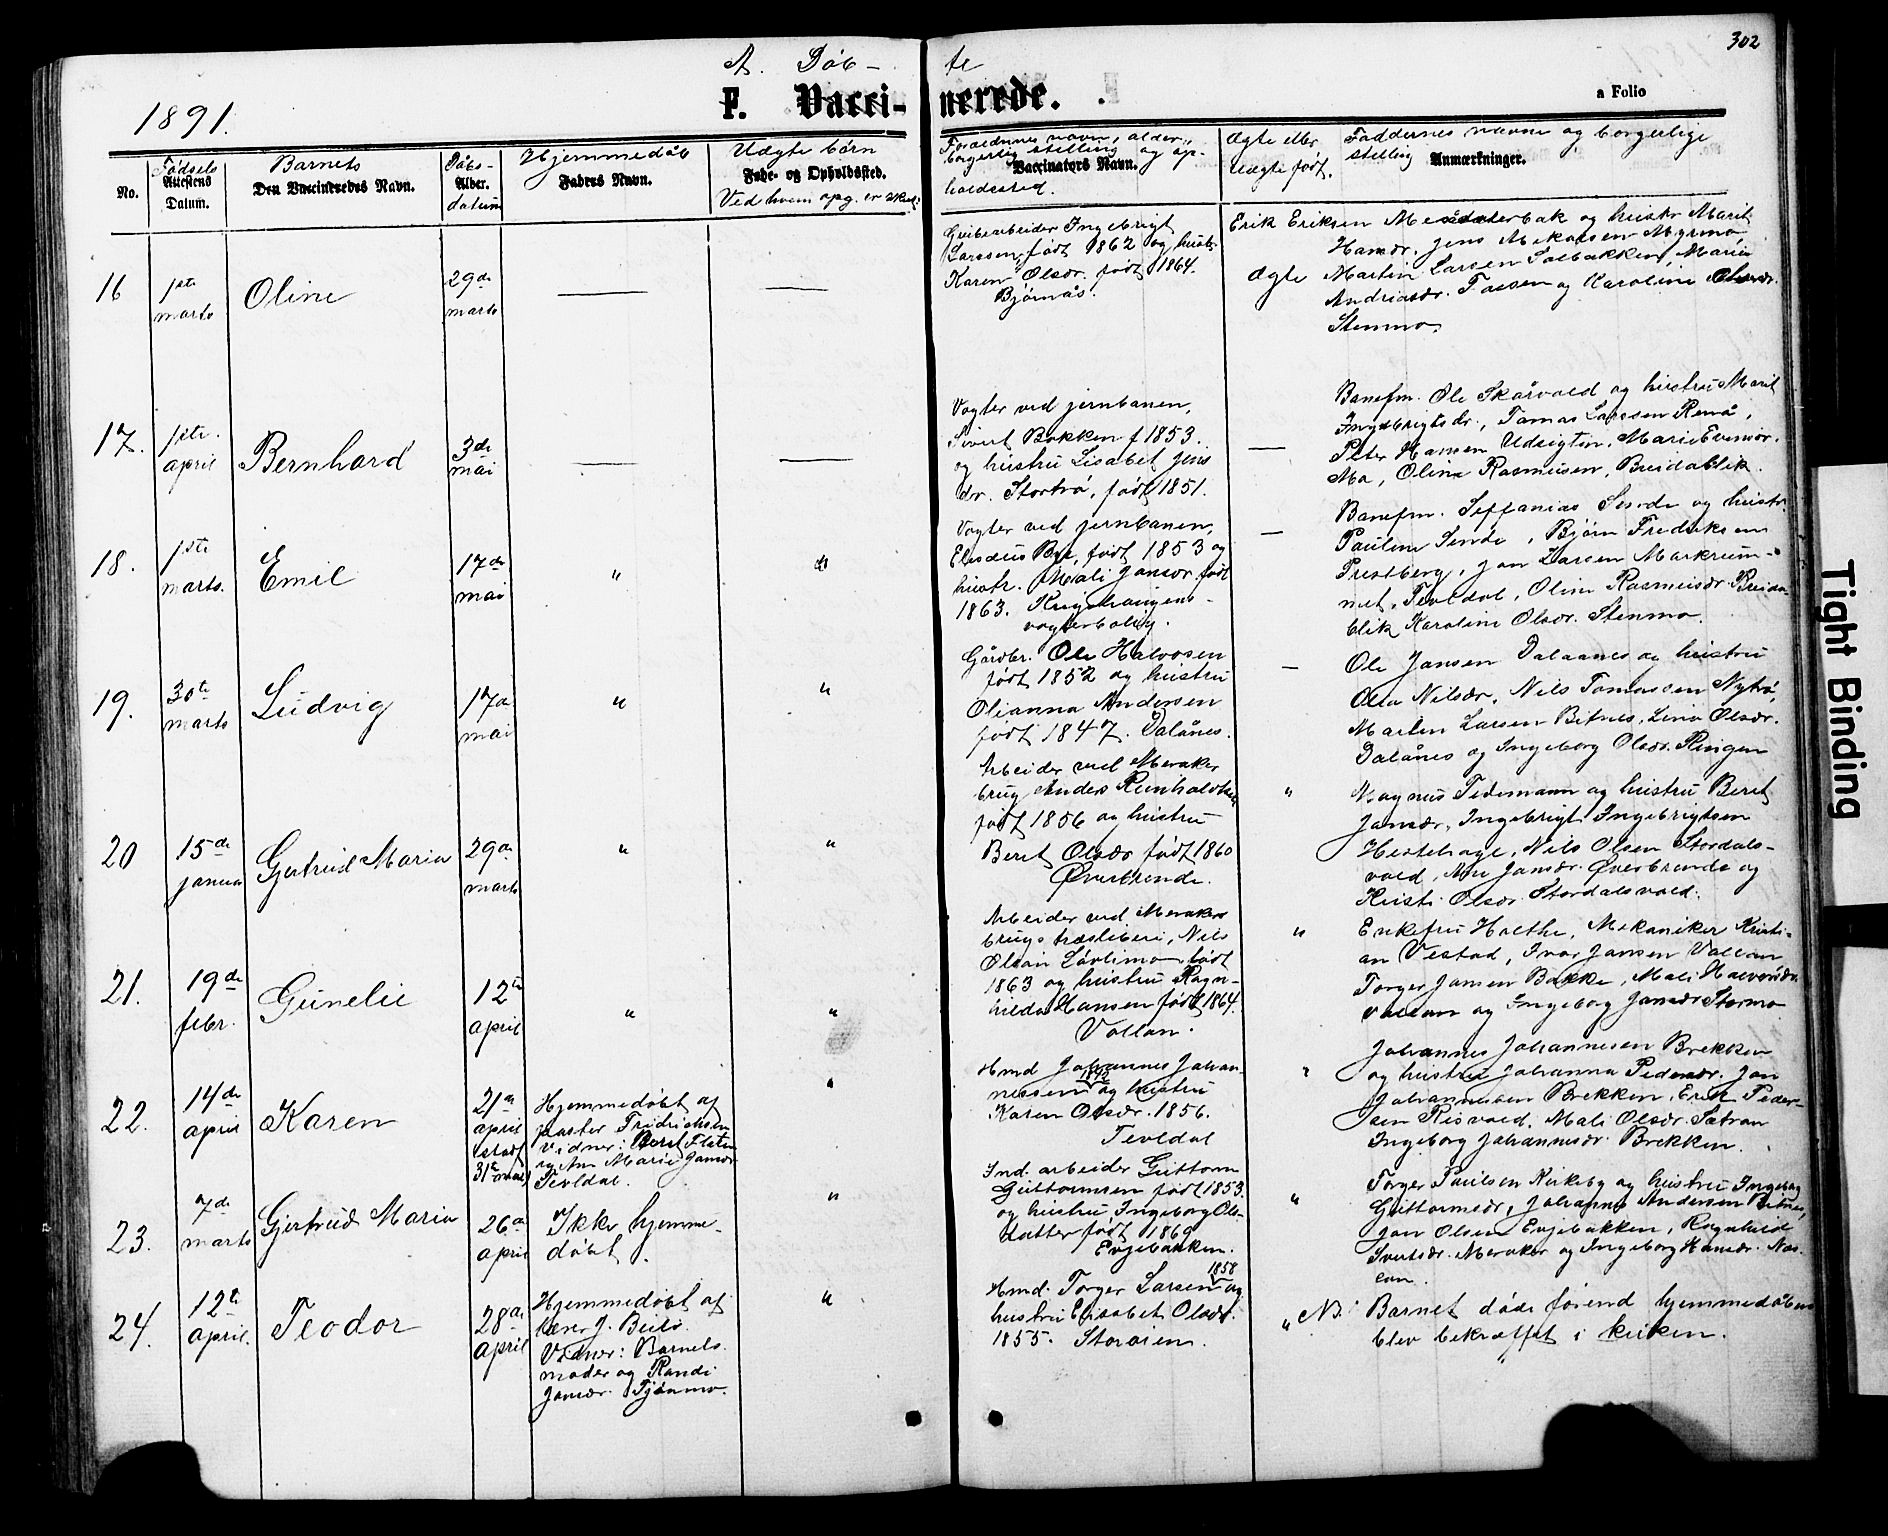 302
A. Døb- te
F. Vacci- nerede.
a Folio
1891.
No.
Fødsels
Attestens
Datum.
Barnets
Den Vaccineredes Navn.
Dåbs-
Alder.
datum
Hjemmedåb
Fadrens Navn.
Uægte børn
Føde- og Opholdssted.
Ved hvem opg. er
Forældrenes navn, alder,
borgerlig stilling og op-
Vaccinators Navn.
holdssted.
Ægte eller
Uægte født.
Faddernes navne og borgerlige
stilling
Anmærkninger.
16
1ste
marts
Oline
29de
marts
Grubearbeider Ingebrigt
Larssen, født 1862 og hustr.
Karen Olsdr. født 1864.
Bjørnås.
ægte
Erik Eriksen og hustr Marit
Hansdr. Jens Mikalsen Myrmo
Martin Larsen Solbakken, Marie
Andriasdr. Fossen og Karoline Olsdr.
Stenmo.
17.
1ste
april
Bernhard
3de
mai
Vogter ved jernbanen,
Sivert Bakken f 1853.
og hustru Lisabet Jens
dr. Stortrø, født 1851.
Banefm. Ole Skårvold og hustru Marit
Ingebrigtsdr., Tomas Larssen Renå,
Peter Hansen Udsigten, Marie Evensdr.
Mo, Oline Rasmusen, Breidablik.
18.
1ste
marts.
Emil
17de
mai
"
"
Vogter ved jernbanen,
Elesæus Bye, født 1853 og
hustr. Mali Jonsdr født
1863. Krigshaugens-
vogterbolig.
Banefm. Seffanias Sende og hustr
Pauline Sende, Bjørn Fredriksen
Prestberg, Jon Larsen Markrum-
met, Tevldal, Oline Rasmusdr. Breida-
blik Karoline Olsdr. Stenmo.
19.
30te
marts
Ludvig
17de
mai
"
"
Gårdbr. Ole Halvosen
født 1852 og hustru
Olianna Andersen
født 1847. Dalånes.
Ole Jansen Dalaanes og hustru
Olea Nilsdr, Nils Tomassen Nytrø,
Martin Larsen Bitnes, Lina Olsdr.
Dalånes og Ingeborg Olsdr. Ringen
20
15de
januar
Gjertrud Maria
29de
marts
"
"
Arbeider ved Meraker
brug Anders Reinholdtsen
født 1856 og hustru
Beret Olsdr født 1860
Øverbrende.
"
Magnus Tidemann og hustru Beret
Jonsdr, Ingebrigt Ingebrigtsen
Hestehage, Nils Olsen Stordals-
vold, Ane Jonsdr. Øverbrende og
Kristi Olsdr. Stordalsvold.
21.
19de
febr.
Gunelie
12te
april
"
"
Arbeider ved Meraker
brugs træsliberi, Nils
Olsen Løvlimo født
1863 og hustru Ragn-
hilda Hansen født 1864.
Vollan.
"
Enkefru Holthe, Mekaniker Kristi-
an Vestad, Ivar Jansen Vollan
Torger Jansen Bakke, Mali Halvorsdr.
Vollan og Ingeborg Jonsdr Stormo
22.
14de
april
Karen
21de
april
(stadf
31te mai)
Hjemmedøbt af
pastor Fridrichsen
Vidner: Beret Flaten
og Ane Marie Jonsdr
Tevldal.
"
Hmd Johannes Johan-
nessen og hustru
Karen Olsdr. 1856.
Tevldal
"
Johannes Johannesen Brekken
og hustru Johanna Pedersdr. Jon
Johannesen Brekken, Erik Peder-
sen Risvold, Mali Olsdr. Sætran
Ingeborg Johannesdr. Brekken.
23.
7de
marts
Gjertrud Maria
26de
april
Ikke hjemme-
døbt.
"
Ind. arbeider Guttorm
Guttormsen født 1853.
og hustru Ingeborg Ols-
datter født 1860
Evjebakken.
"
Torger Paulsen Kirkeby og hustru Ingeborg
Guttormsdr, Johannes Andersen Bitnes,
Jon Olsen Evjebakken, Ragnhild
Ivertsdr. Meraker og Ingeborg Hansdr. Nus-
tan.
24.
12te
april.
Teodor
28de
april
Hjemmedøbt af
lærer J. Beitø.
Vidner: Barnets
moder og Randi
Jonsdr. Tjønmo.
"
1858
Hmd. Torger Larsen og
hustru Elisabet Olsdr.
1855. Storåsen.
"
NB! Barnet døde førend hjemmedåben
blev bekræftet i kirken.
Tight Binding